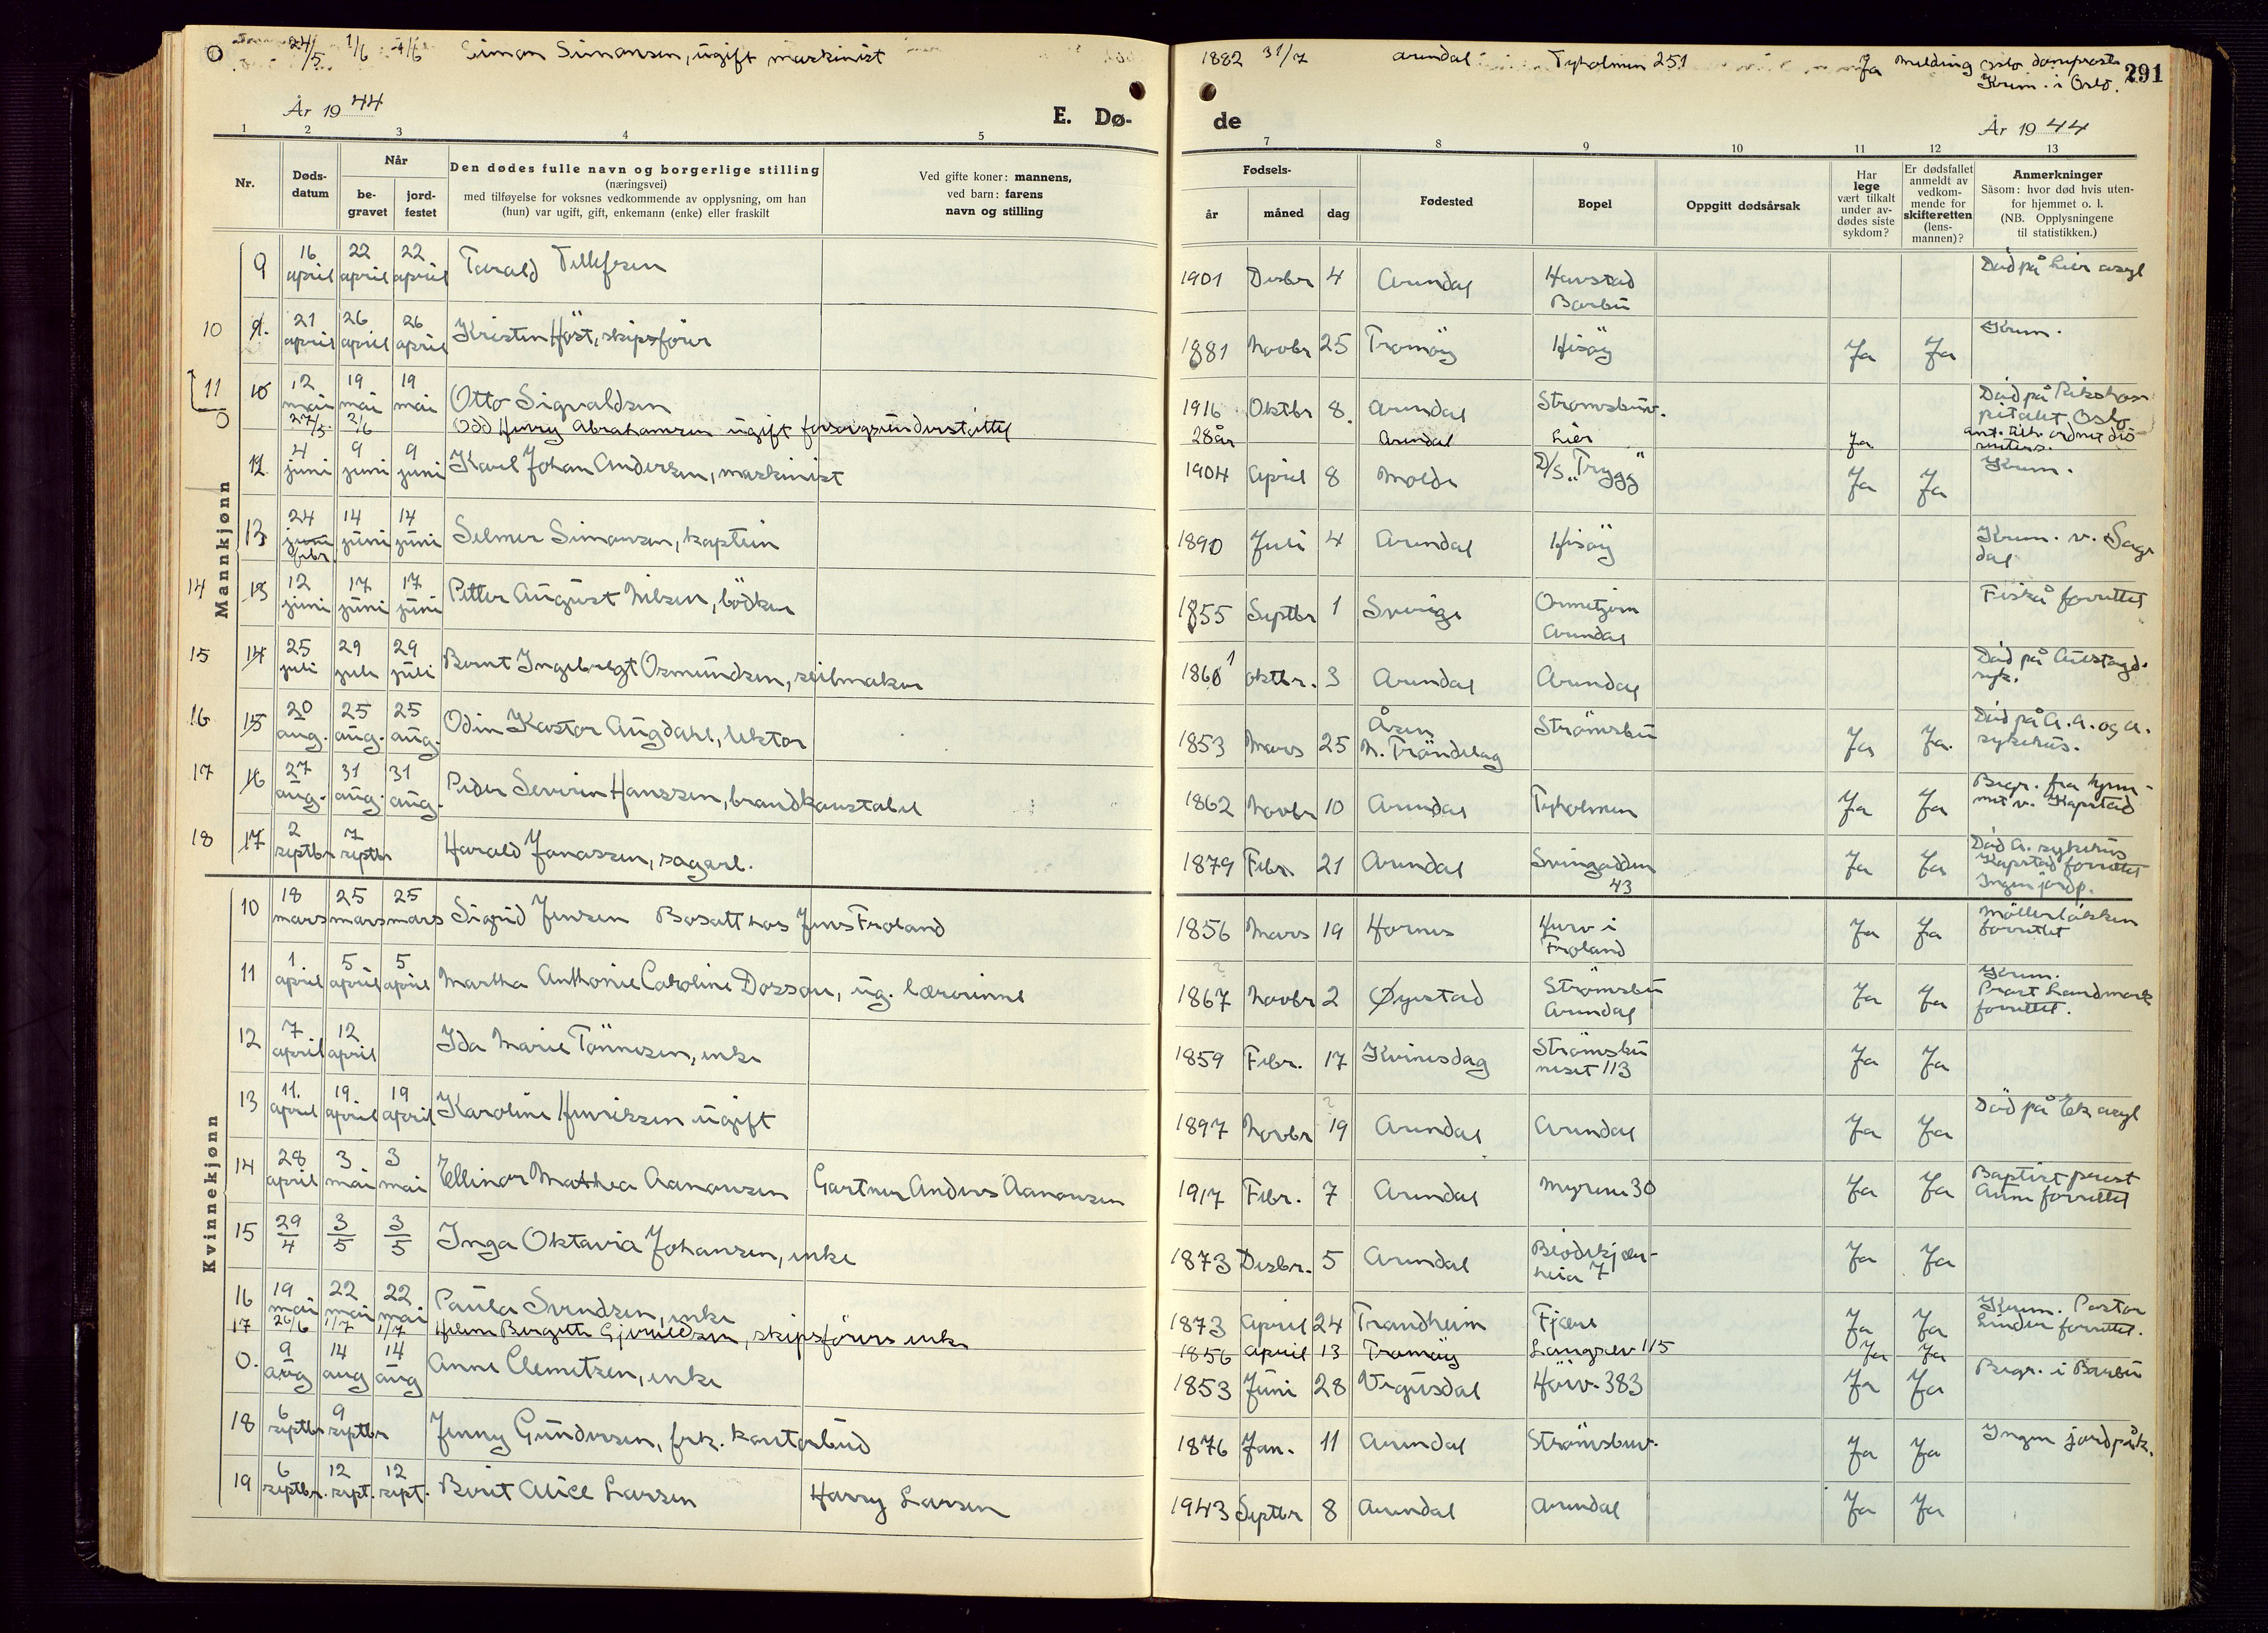 O 24/5 1/6 4/6 Simon Simonsen, ugift maskinist 1882 31/7 Arendal Tyholmen 251 Ja Melding Oslo domprosti
Krem. i Oslo.
291
År 1944 E. Dø- de År 1944
1 2 3 4 5 7 8 9 10 11 12 13
Nr.
Døds-
datum
Når
be-
gravet
jord-
festet
Den dødes fulle navn og borgerlige stilling
(næringsvei)
med tilføyelse for voksnes vedkommende av opplysning, om han
(hun) var ugift, gift, enkemann (enke) eller fraskilt
Ved gifte koner: mannens,
ved barn: farens
navn og stilling
Fødsels-
år måned dag
Fødested
Bopel
Oppgitt dødsårsak
Har
lege
vært tilkalt
under av-
dødes siste
sykdom?
Er dødsfallet
anmeldt av
vedkom-
mende for
skifteretten
(lens-
mannen)?
Anmerkninger
Såsom: hvor død hvis uten-
for hjemmet o. l.
(NB. Opplysningene
til statistikken.)
Mannkjønn
9 16 april 22 april 22 april Tarald Tellefsen 1901 Desbr 4 Arendal Havstad Barbu Död på Lier asyl
10 21 april 26 april 26 april Kristen Höst, skipsförer 1881 Novbr 25 Tromöy Hisöy Ja Ja Krem.
11 10 12 mai 19 mai 19 mai Otto Sigvaldsen 1916 Oktbr 8 Arendal Strömsbuv. Död på Rikshospitalet Oslo
O 27/5 2/6 Odd Henry Abrahamsen ugift forsorgsunderstöttet 28 år Arendal Lier Ja
12 4 juni 9 juni 9 juni Karl Johan Andersen, maskinist 1904 April 8 Molde D/S "Trygg" Ja Ja Krem.
13 24 juni febr. 14 juni 14 juni Selmer Simonsen, kaptein 1890 Juli 4 Arendal Hisöy Krem. v. Sagdal
14 13 12 juni 17 juni 17 juni Petter August Nilsen, bödker 1855 Septbr 1 Sverige Ormetjern Arendal Fiskå forrettet
15 14 25 juli 29 juli 29 juli Bernt Ingebregt Osmundsen, seilmaker 1860 1 oktbr. 3 Arendal Arendal Död på Austagd. syk.
16 15 20 aug. 25 aug. 25 aug. Odin Kastor Augdahl, lektor 1853 Mars 25 Åsen N. Tröndelag Strömsbu Ja Ja. Död på A. A. og A. sykehus.
17 16 27 aug. 31 aug. 31 aug. Peder Severin Hanssen, brandkonstabel 1862 Novbr 10 Arendal Tyholmen Ja Ja Begr. fra hjemmet v. Kapstad
18 17 2 septbr 7 septbr Harald Jonassen, sagarb. 1879 Febr 21 Arendal Svingodden 43 Ja Ja Död A. sykehus Kapstad forrettet Ingen jordp.
Kvinnekjønn
10 18 mars 25 mars 25 mars Sigrid Jensen Bosatt hos Jens Froland 1856 Mars 19 Hornes Hurv i Froland Ja Ja Möllerlökken forrettet
11 1 april 5 april 5 april Martha Anthonie Caroline Dosson, ug. lærerinne 1867 Novbr 2 Øyestad Strömsbu Arendal Ja Ja Krem. Prost Landmark forrettet.
12 7 april 12 april Ida Marie Tönnesen, enke 1859 Febr. 17 Kvinesdag Strömsbuneset 113 Ja Ja
13 11. april 19 april 19 april Karoline Henriksen ugift 1897 Novbr ? 19 Arendal Arendal Ja Ja Död på Ek asyl
14 28 april 3 mai 3 mai Ellinor Mathea Aanonsen Gartner Anders Aanonsen 1917 Febr. 7 Arendal Myrene 30 Ja Ja Baptist prest Aune forrettet
15 29/4 3/5 3/5 Inga Oktavia Johansen, enke 1873 Desbr. 5 Arendal Bedkjærheia 7 Ja Ja
16 19 mai 22 mai 22 mai Paula Svendsen, enke 1873 April 24 Trondheim Fjære Ja Ja Krem. Pastor Linder forrettet.
17 26/6 1/7 1/7 Helene Birgitte Gjeruldsen, skipsförers enke 1856 April 13 Tromöy Langsev 115 Ja Ja
O. 9 aug 14 aug 14 aug Anne Clemetsen, enke 1853 Juni 28 Vegusdal Höiv. 383 Ja Ja Begr. i Barbu
18 6 septbr 9 septbr Jenny Gundersen, frk. kontorbud 1876 Jan. 11 Arendal Strömsbuv. Ja Ja Ingen jordpåk.
19 6 septbr. 12 sept. 12 sept. Berit Alice Larsen Harry Larsen 1943 Septbr 8 Arendal Arendal Ja Ja